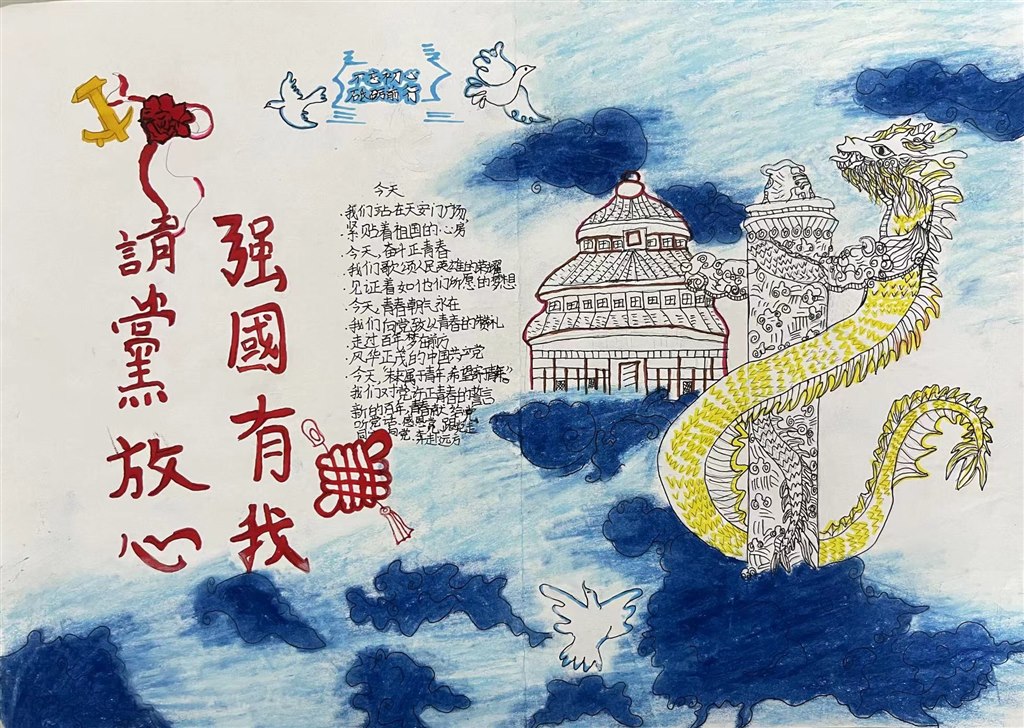 不忘初心
砥砺前行
請黨放心
强國有我
今天
·我们站在天安门广场
·紧贴着祖国的心房
·今天,奋斗正青春
·我们歌颂人民英雄的荣耀
·见证着如他们所愿的梦想
·今天,青春朝气永在
·我们向党致以青春的赞礼
·走过百年梦在前方
·风华正茂的中国共产党
·今天,"未来属于青年,希望
我们对党许下青春的誓言
新的百年,青春献给党
听党话,感党恩,跟党走